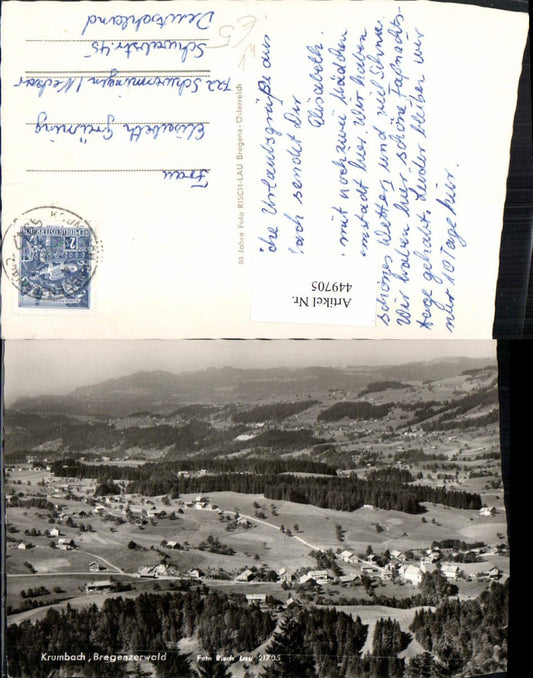 Frau
Elisabeth
722 Schwenningen / Neckar
Schwabstr. 45
Deutschland
80 Jahre Foto RISCH-LAU Bregenz-Österreich
che Urlaubsgrüße aus
bach sendet dir
Elisabeth.
mit noch zwei Mädchen
umstadt hier. Wir haben
schönes Wetter, und viel Schnee.
Wir haben hier schöne Faßnachts-
tage gehabt. Leider bleiben wir
nur 10 Tage hier.
Artikel Nr.
449705
REPUBLIK ÖSTERREICH
Krumbach, Bregenzerwald
Foto Risch Lau 21705